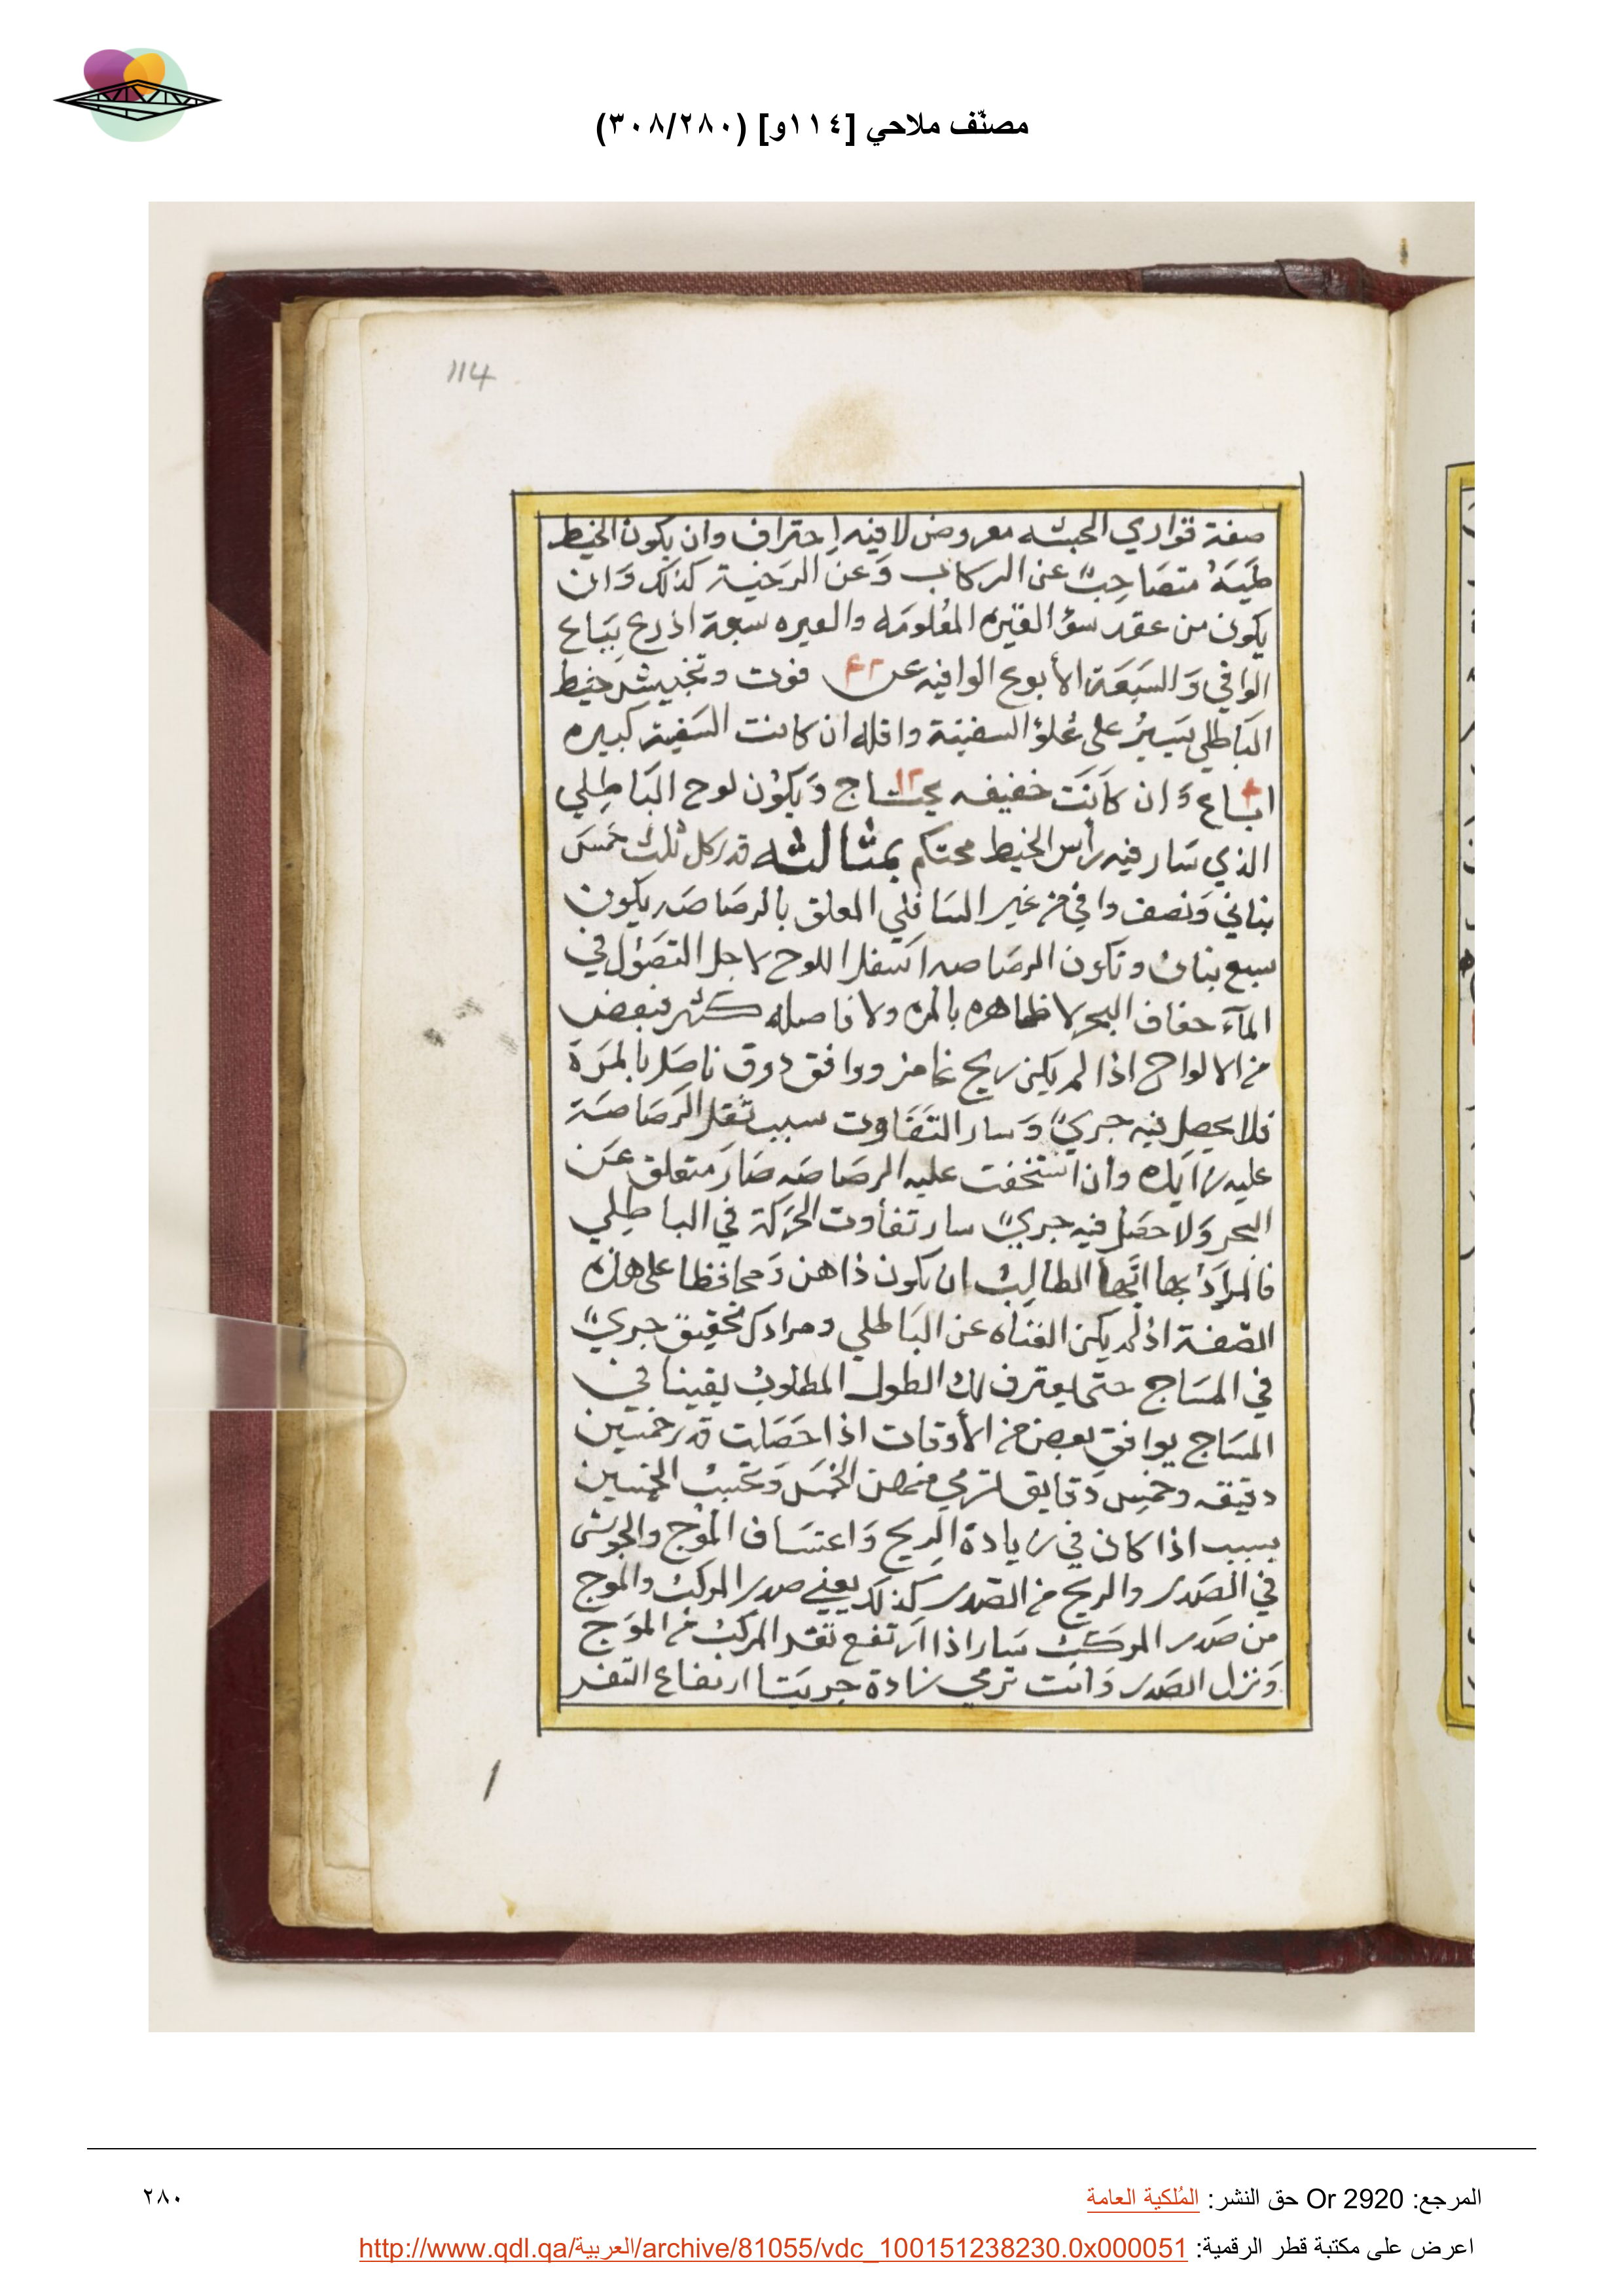 مصنّف ملاحي [١١٤و] (٣٠٨/٢٨٠)
114
صفة قواري الحبشه معروض لا فيه احتراف وان يكون الخيط
طَيَة متصَاحِبٌ عن الركاب وَعن الرَخية كذلك وَان
يكون من عقد سؤ الغيره المعُلومَه والعيره سبعة اذرع بَبَاع
الوافي وَالسَبعَة الأبوع الوافيه عن ٤٢ فوت وتخييش خيط
البَاطلي يَسيرُ على عُلوْ السفينة واقله ان كانت السَفينة كبيره
٤ ابَاع وَان كاَنَت خفيفه يحتاج ١٢ وَيكوُن لوح البَاطِلي
الذي سَار فيه رأس الخيط محتكم بمثالثه قدر كل ثلث خمسَ
بناني وَنصف وافي من غير السَافلي المعلق بالرصَاصَه يكون
سبع بنان وتكون الرصَاصه اَسفل اللوح لاجل التصَوّل في
المآء حفاف البحر لا ظاهره بالمره ولا فاصله كثير فبعض
من الالواح اذا لم يكن ريح غامز ووافق دوق ناصَل بالمَرَة
فلا يحصل فيه جريٌ وَسار التَفَاوت سبب ثقل الرَصَاصَة
عليه زايده وان استخفت عليه الرصَاصَه صَارَ متعلق عَن
البحر وَلا حصَل فيه جريٌ سار تفاوت الحَركة في الباطِلي
فالمرَادُ بها ايّها الطالِبُ ان يكون ذاهن وَمحافظا على هذه
الصّفة اذ لم يكن الغناه عن البَاطلي ومرادك تحقيق جريٌ
في المسَاج حتى يعترف لك الطول المطلوبُ يقينا في
المسَاج يوافق بعض من الأوقات اذا حَصَلت قدر خمسَين
دقيقه وخمِس دَقايق لترمي منهن الخمسَ وَتحسِبُ الخمسين
بسبب اذا كان في زيادة الرِيح وَاعتسَاف الموُج والجوش
في الصَدر والريح من الصَدر كذلك يعني صدر المركبُ والموج
من صَدر المركَبُ سَار اذا اَرتفع تفر المركبُ من الموَج
وَنزل الصَدر وَانت ترمي زادة جريَتا ارتفاع التفر
المرجع: Or 2920 حق النشر: المُلكية العامة
٢٨٠
اعرض على مكتبة قطر الرقمية: http://www.qdl.qa/العربية/archive/81055/vdc_100151238230.0x000051